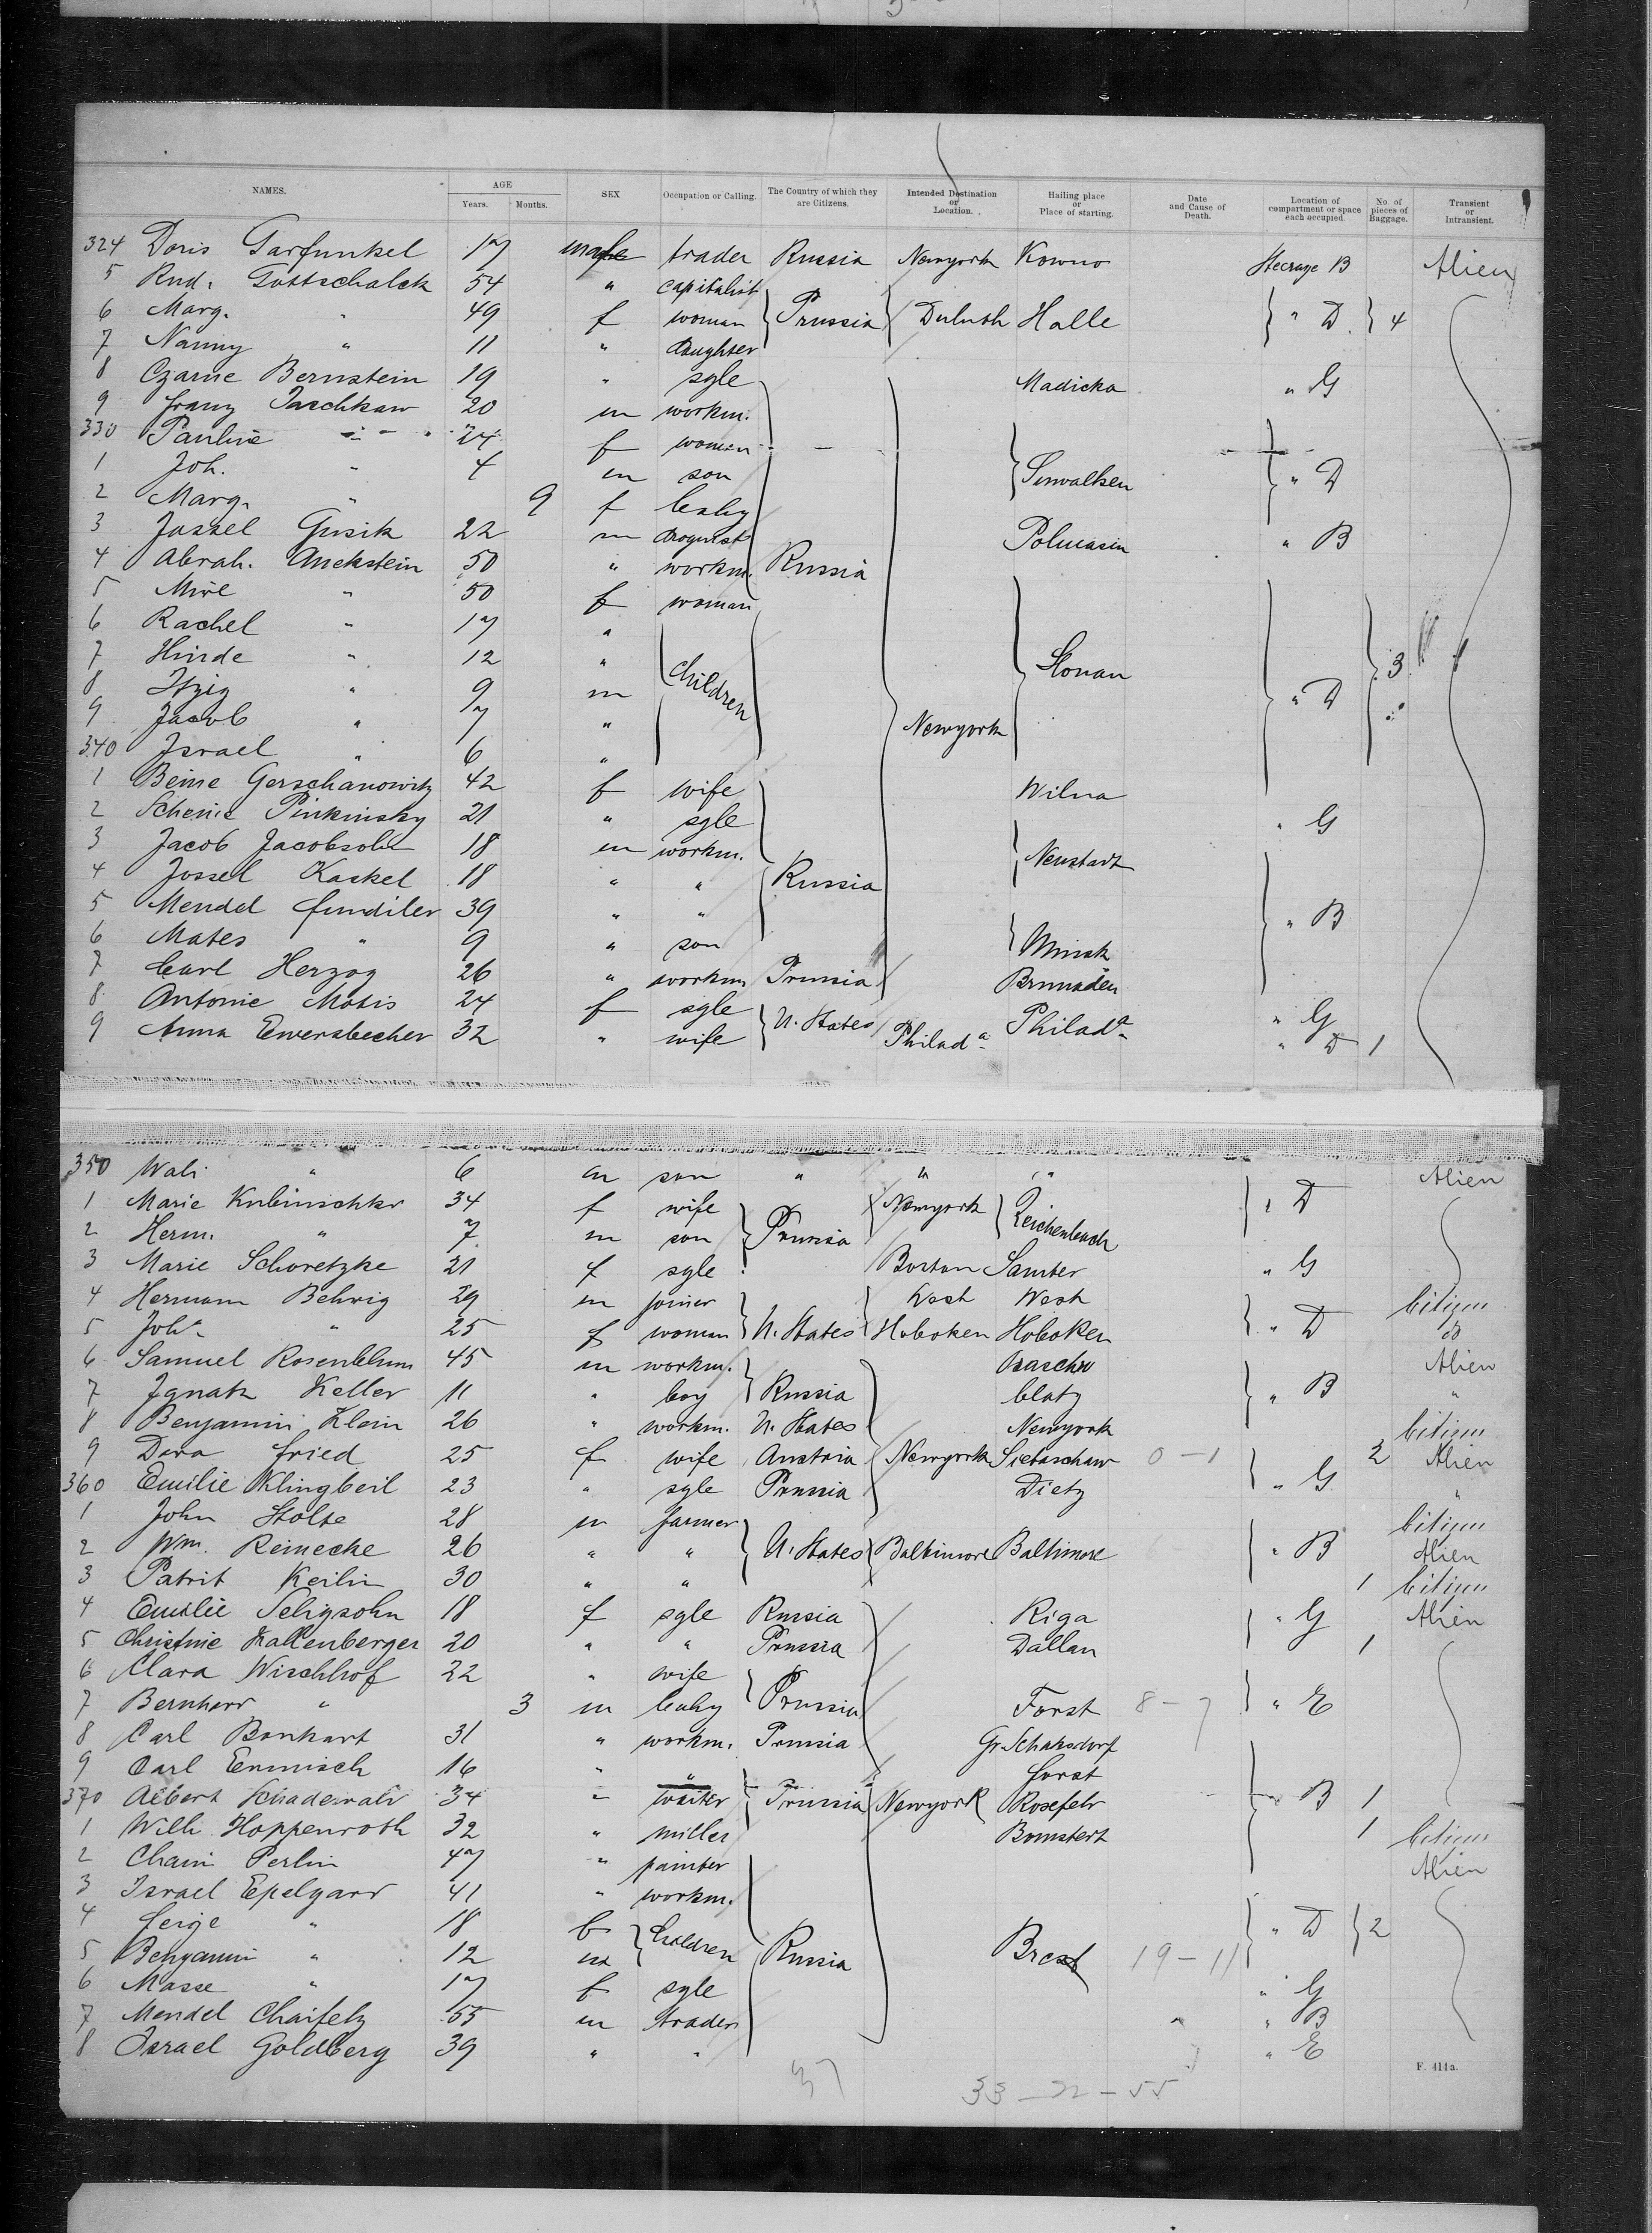 NAMES. AGE Years. Months. SEX Occupation or Calling. The Country of which they are Citizens. Intended Destination or Location. Hailing place or Place of starting. Date and Cause of Death. Location of compartment or space each occupied. No. of pieces of Baggage. Transient or Intransient.
324 Doris Garfunkel 17 male trader Russia Newyork Kowno Steerage B Alien
5 Rud. Gottschalck 54 " capitalist
6 Marg. " 49 f woman Prussia Duluth Halle " D 4
7 Nanny " 11 " daughter
8 Czarne Bernstein 19 " sgle Madicka " G
9 Franz Jaschkaw 20 m workm.
330 Pauline " 24 f woman
1 Joh. " 4 m son Suwalken " D
2 Marg. " 9 f baby
3 Jossel Gusik 22 m droguist " B
4 Abrah. Anekstein 50 " workm. Russia
5 Mire " 50 f woman
6 Rachel " 17 "
7 Hinde " 12 " children Slonan 3
8 Itzig " 9 m " D
9 Jacob " 7 " Newyork
340 Israel " 6 "
1 Beine Gerschanowitz 42 f wife Wilna
2 Schenie Pinkinsky 21 " sgle " G
3 Jacob Jacobsohn 18 m workm. Neustadt
4 Jossel Kaskel 18 " " Russia
5 Mendel Fundiler 39 " " " B
6 Mates " 9 " son Minsk
7 Carl Herzog 26 " workm Prussia Brunaden
8 Antonie Motis 24 f sgle U. States Philada " G
9 Anna Ewersbecher 32 " wife Philada " D 1
350 Wali " 6 m son " " " Alien
1 Marie Kubinschke 34 f wife Newyork " D
2 Herm. " 7 m son Prussia Reichenbach
3 Marie Schoretzke 21 f sgle Boston Samter " G
4 Hermann Behrig 29 m joiner West West Citizen
5 Joh. " 25 f woman U. States Hoboken Hoboken " D
6 Samuel Rosenblum 45 m workm. Alien
7 Ignatz Keller 11 " boy Russia Clatz " B "
8 Benjamin Klein 26 " workm. U. States Newyork Citizen
9 Dora Fried 25 f wife Austria Newyork 0 - 1 2 Alien
360 Emilie Klingbeil 23 " sgle Prussia Dietz " G "
1 John Stolte 28 m farmer Citizen
2 Wm. Reinecke 26 " " U. States Baltimore Baltimore " B Alien
3 Patrit Keilin 30 " " 1 Citizen
4 Emilie Seligsohn 18 f sgle Russia Riga " G Alien
5 Christine Kallenberger 20 " " Prussia Dallan 1
6 Clara Wischhof 22 " wife
7 Bernhard " 3 m baby Prussia Forst 8 - 7 " E
8 Carl Bonkart 31 " workm. Prussia Gr. Scharsdorf
9 Carl Emmisch 16 " " Forst
370 Albert Schadewald 34 " waiter Prussia Newyork Rosefeld " B 1
1 Willi Hoppenroth 32 " miller Bomstert 1 Citizen
2 Chaim Perlin 47 " painter Alien
3 Israel Epelgard 41 " workm.
4 Feige " 18 f children " D 2
5 Benjamin " 12 m Russia Brest 19 - 11
6 Masse " 17 f sgle " G
7 Mendel Chaifetz 55 m trader " B
8 Israel Goldberg 39 " " " E
37 33 - 22 - 55
F. 414a.